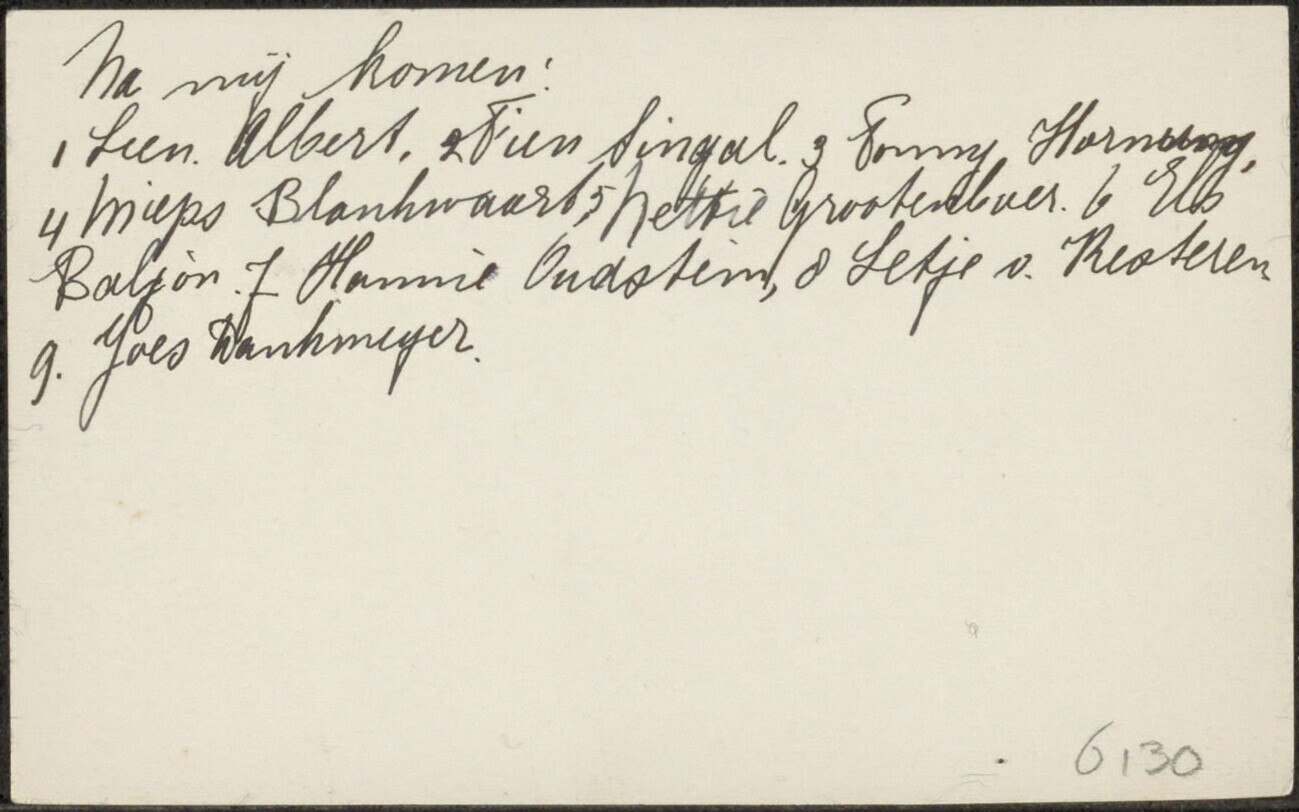 Na mij komen:
1 Lien. Albert. 2 Fien Singal. 3 Tonny Hornung,
4 Mieps Blankwaard, 5 Nettie Grootenboer. 6 Els
Baljon. 7 Hannie Oudstein, 8 Letje v. Resteren
9. Goes Dankmeyer.
6130